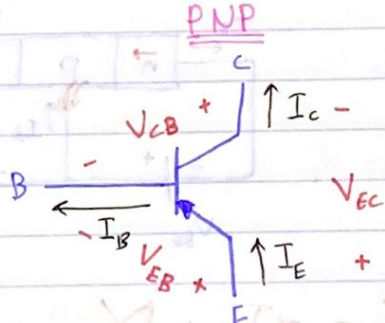 PNP
C
V_CB + ↑ I_C -
-
B V_EC
← I_B
- V_EB + ↑ I_E +
E